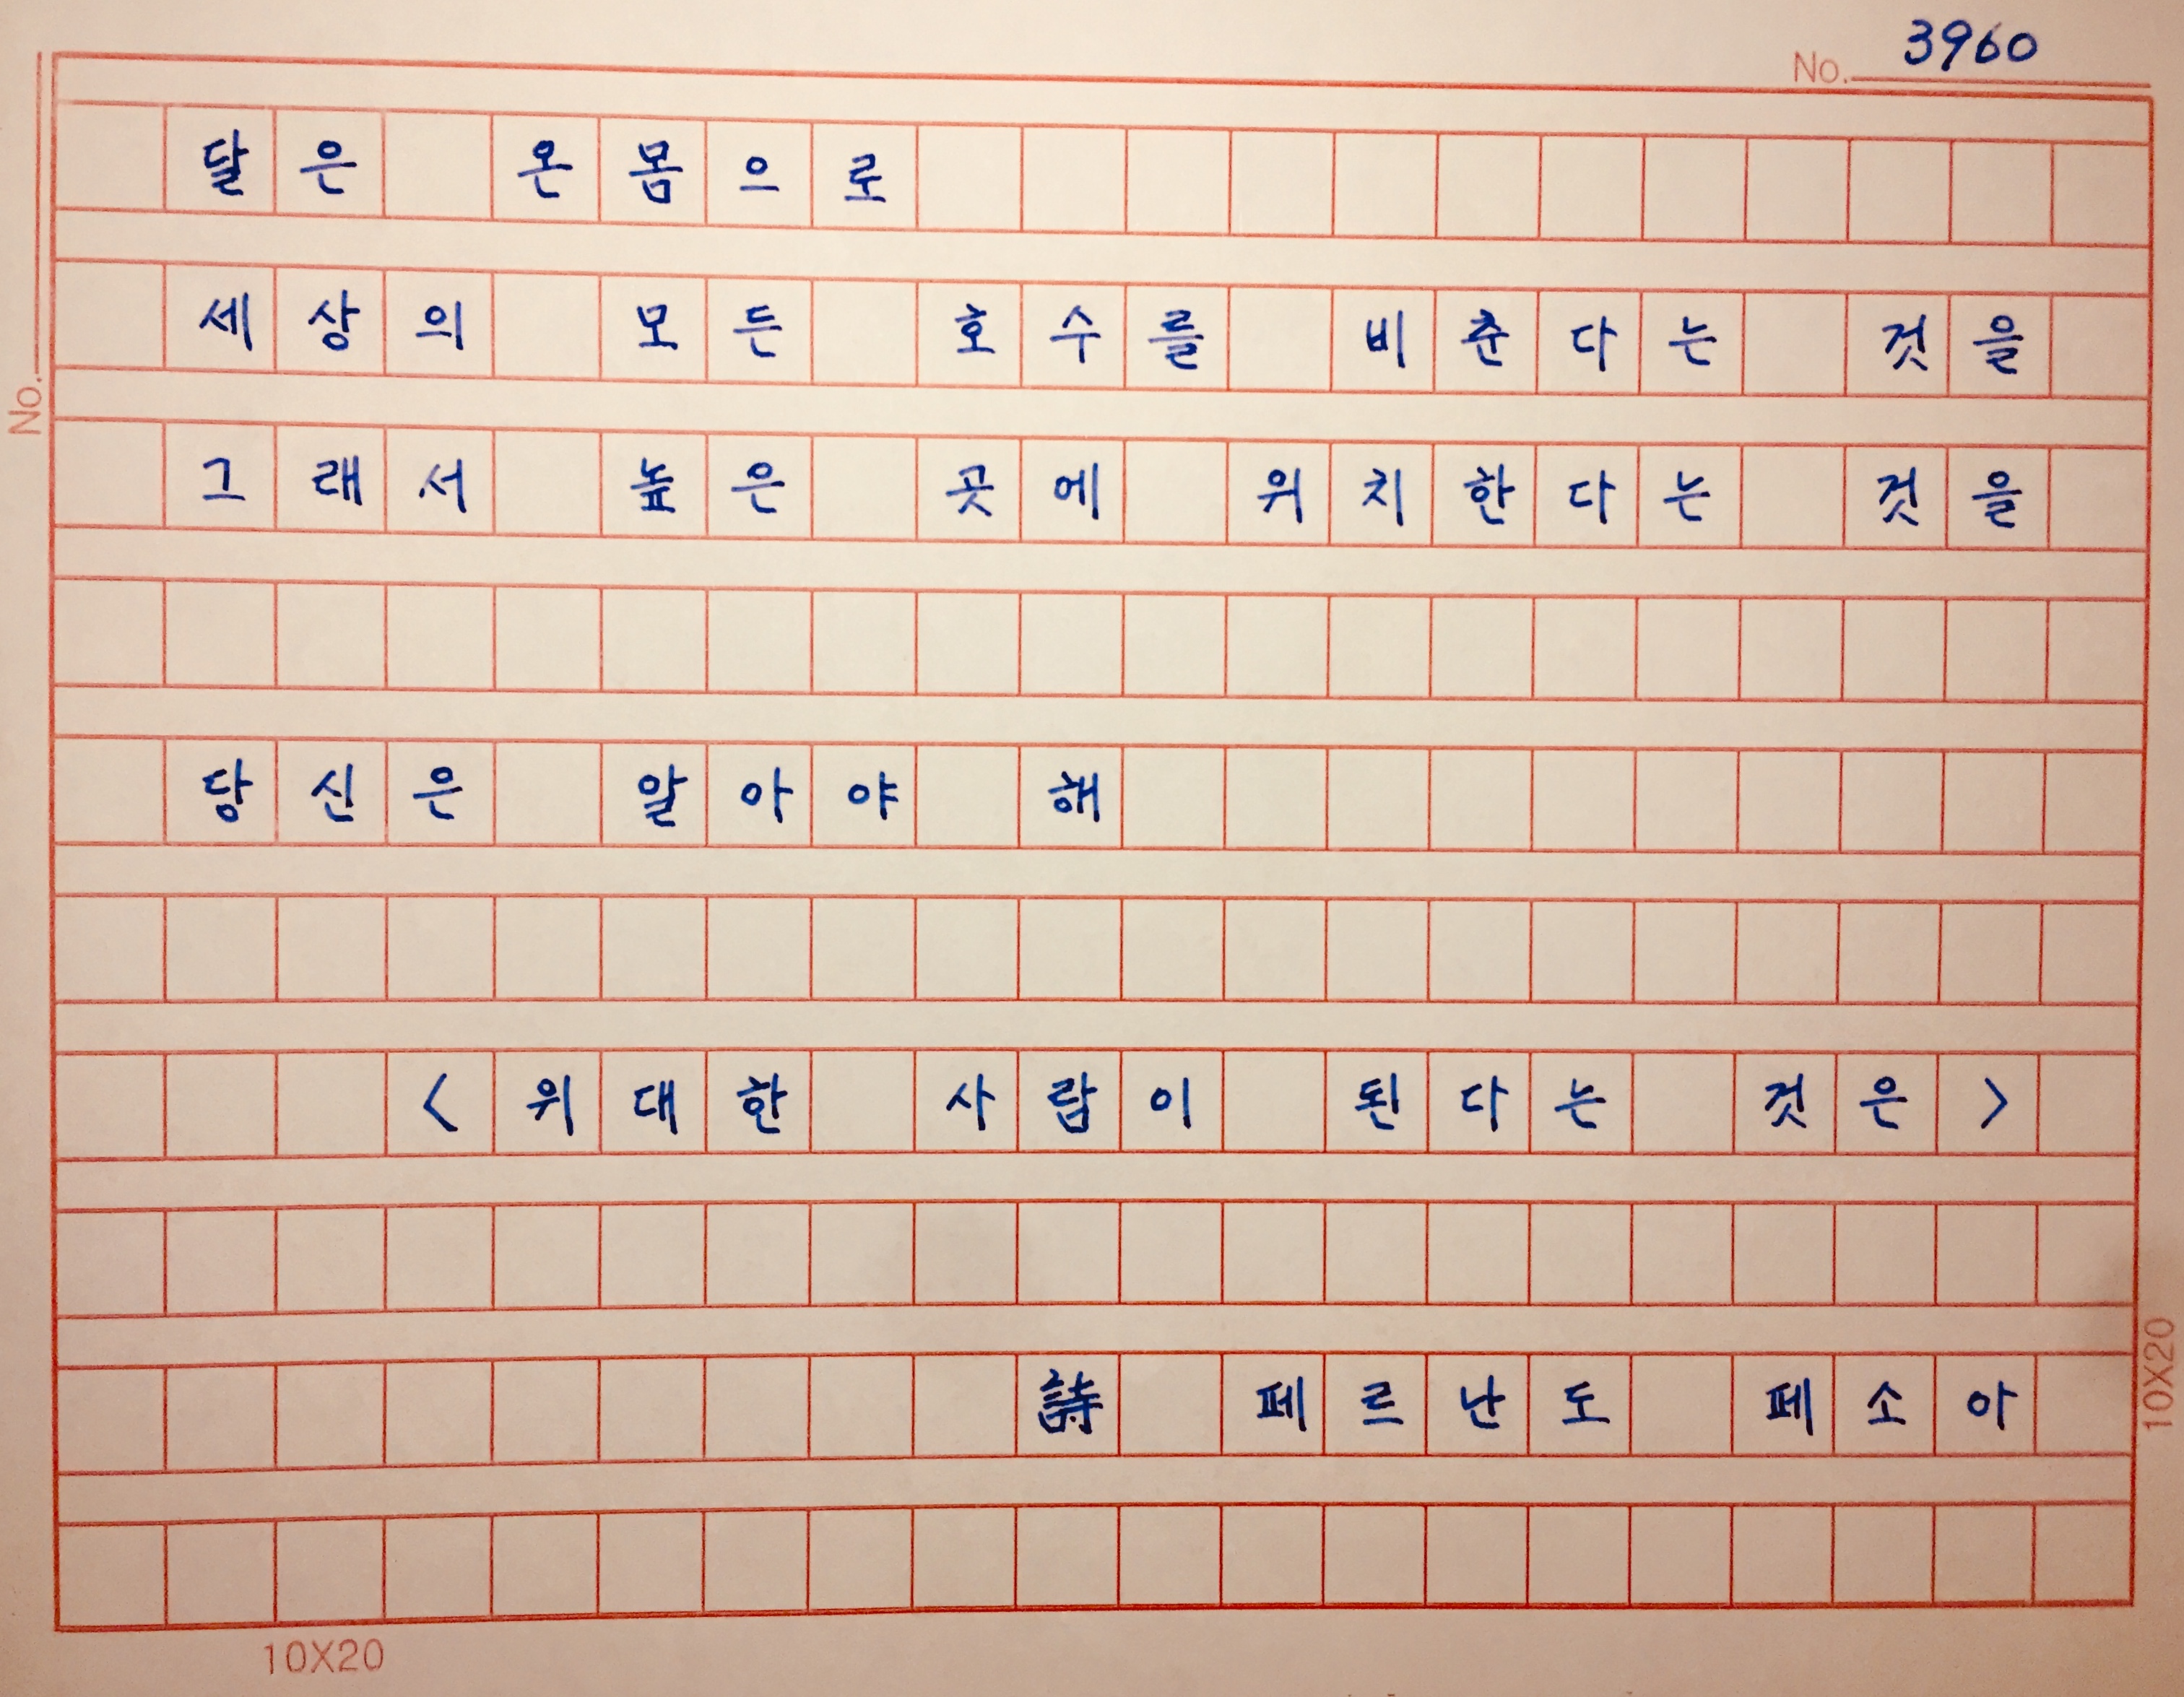 No. 3960
달은 온몸으로
세상의 모든 호수를 비춘다는 것을
No.
그래서 높은 곳에 위치한다는 것을
당신은 알아야 해
<위대한 사람이 된다는 것은>
詩 페르난도 페소아
10X20
10X20